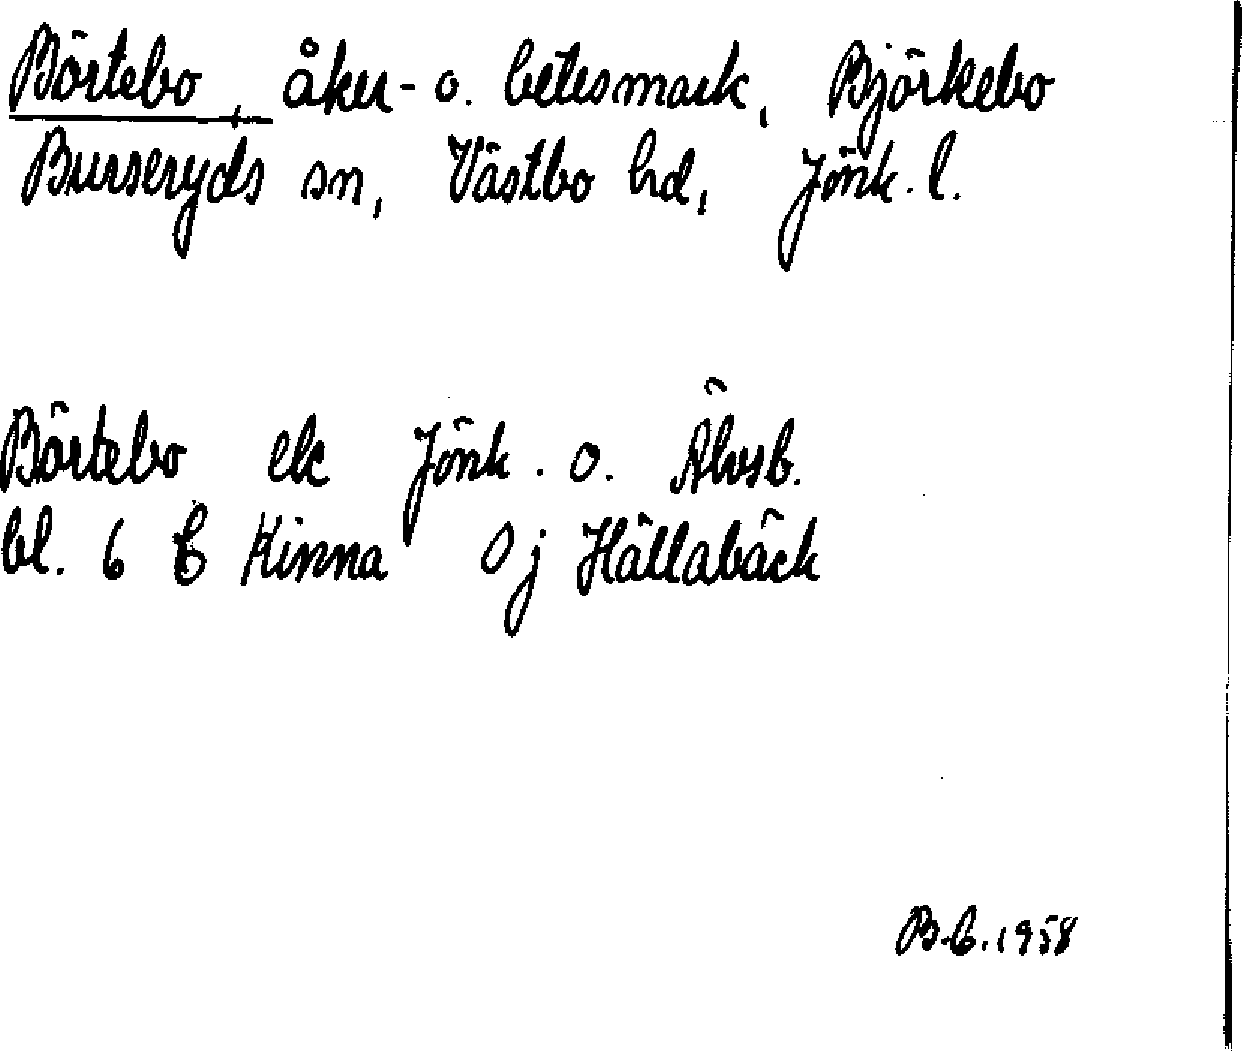 Börtebo, åker- o. betesmark, Björkebo
Burseryds sn, Västbo hd, Jönk. l.
Börtebo ek Jönk. o. Älvsb.
bl. 6 C Kinna 0 j Hällabäck
B.C. 1958